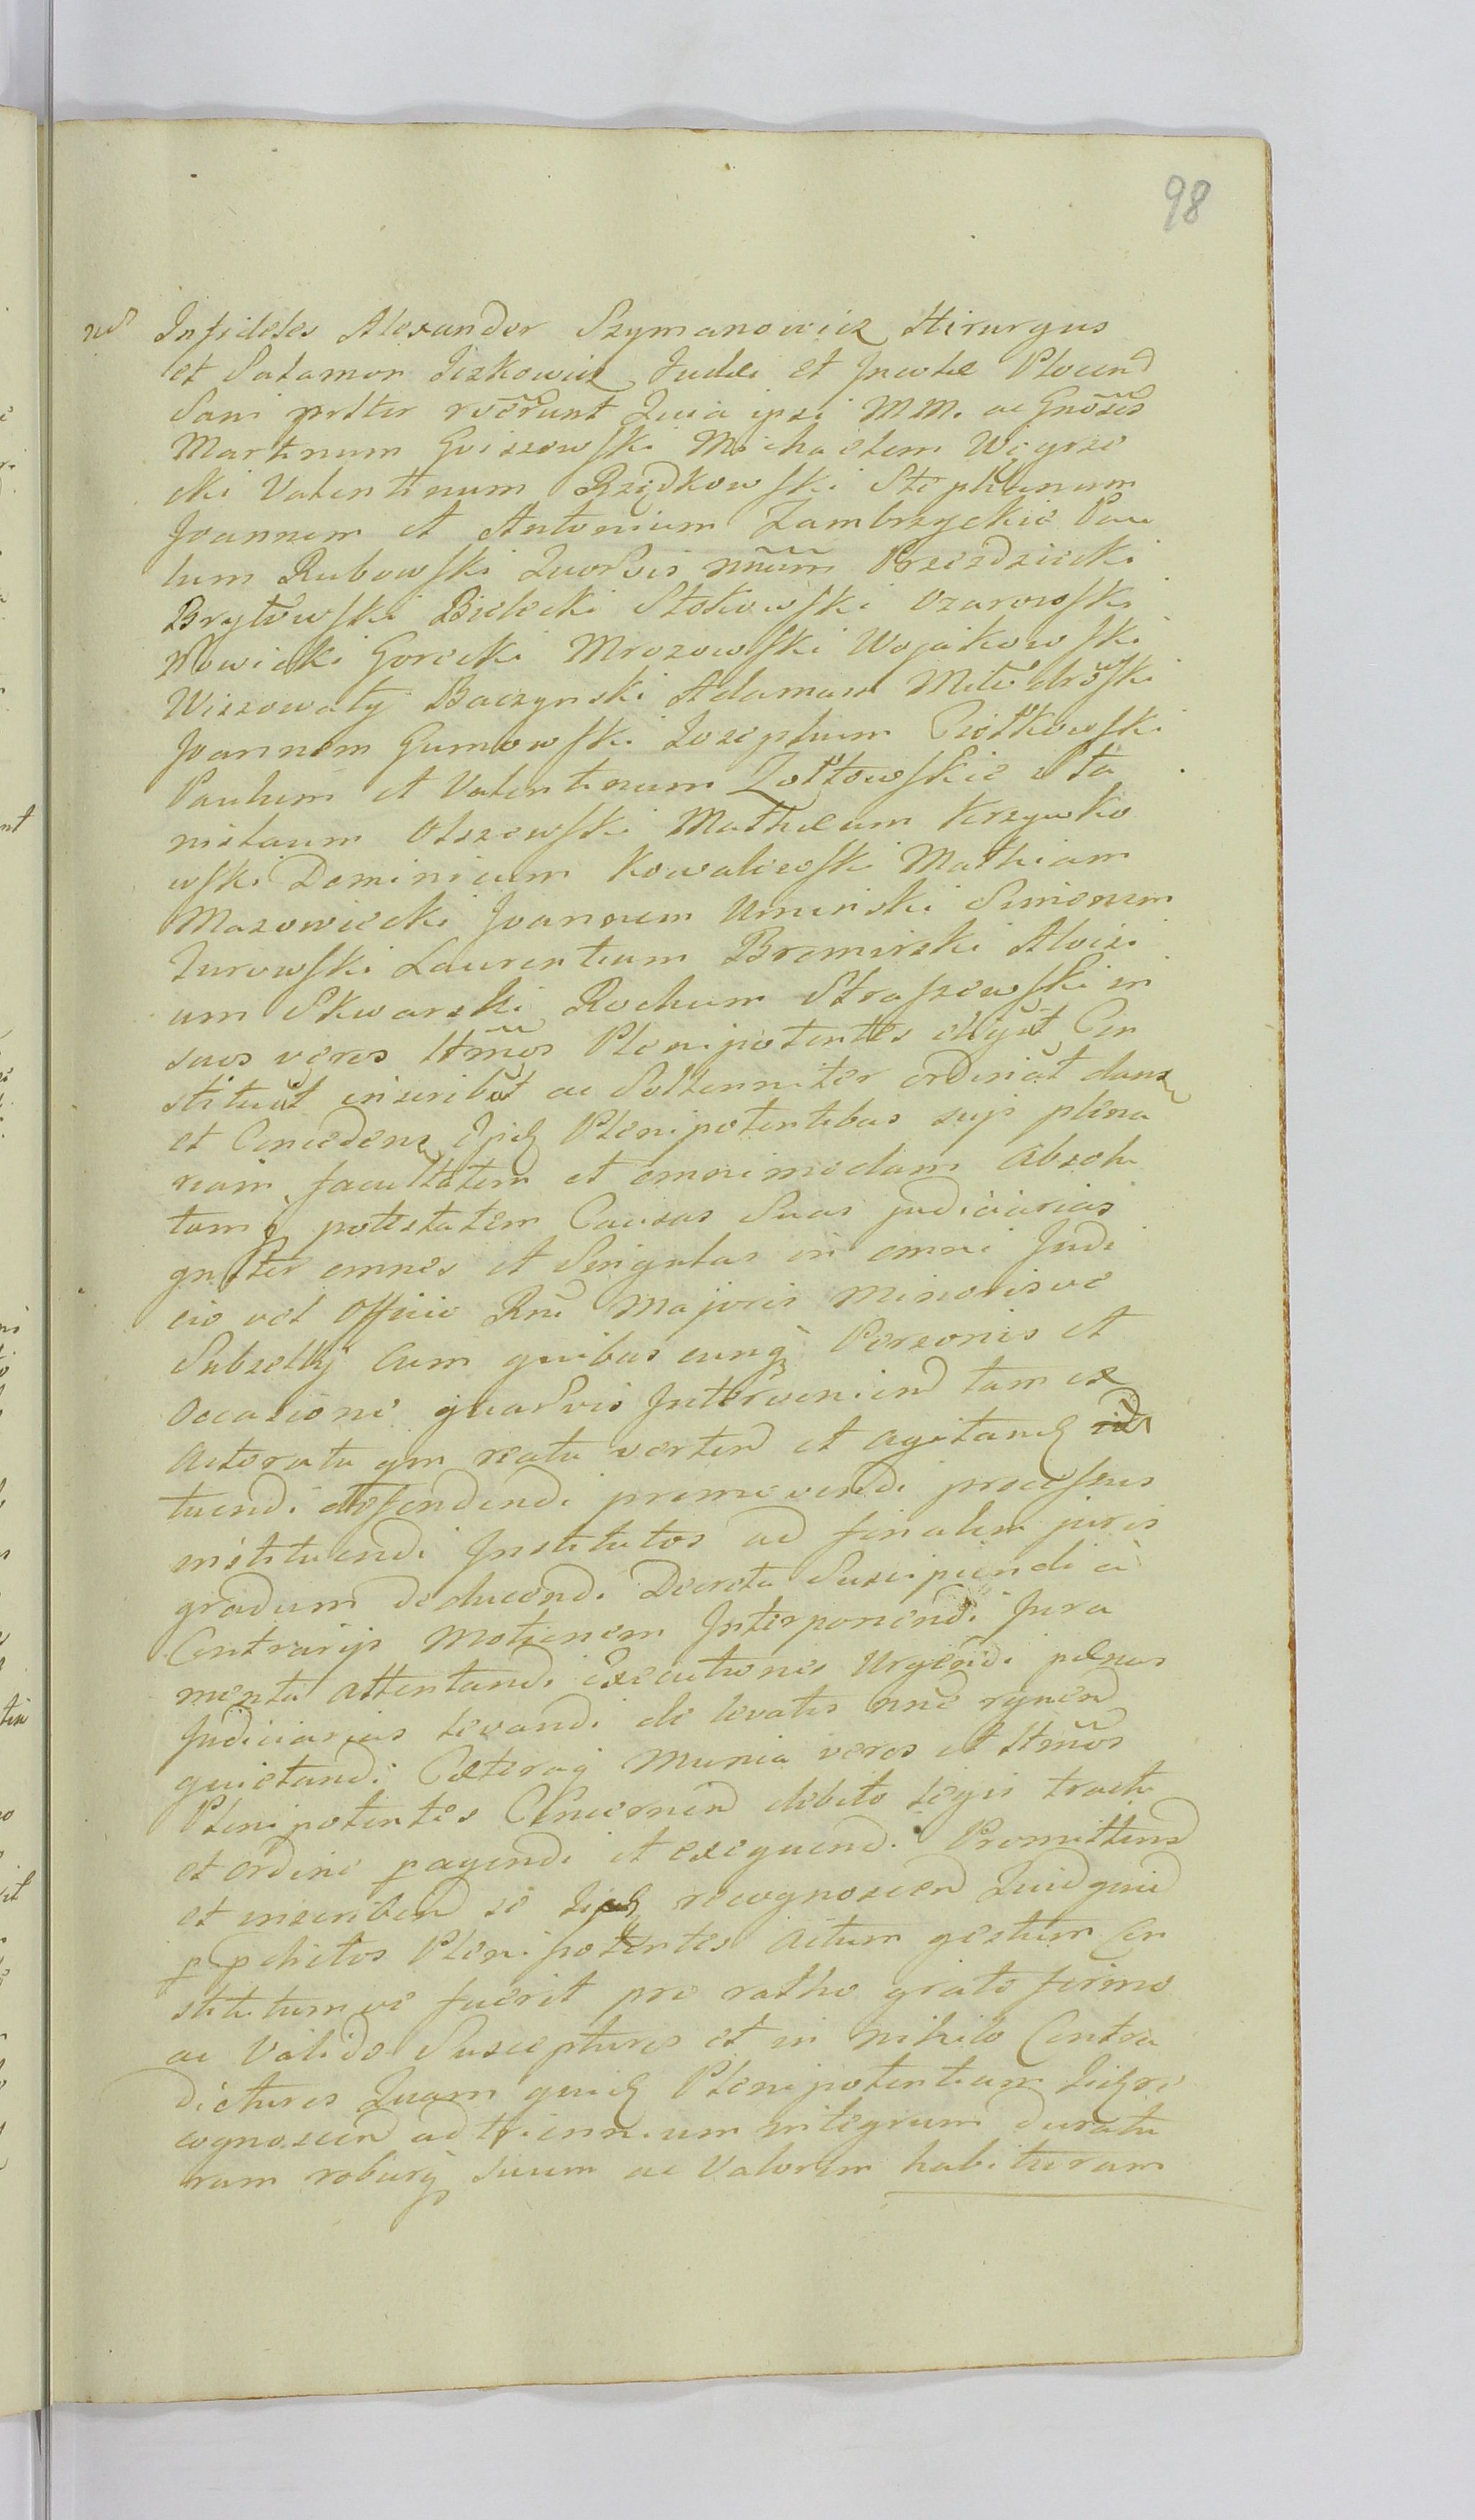 98
Infideles Alexander Szymanowicz Hirurgus
et Salamon Iizkowicz Judæi et Incolæ Plocend
Sani rvērunt Quia ipsi MM. ac Gnōsos
Martinum Goiszewski Michaelem Węgrze
cki Valentinum Rzędkowski Stephanum
Joannem et Antonium Zambrzyckie Pau
lum Rubowski Quosvis nnūm Przezdziecki
Brytowski Bielecki Stokowski Ozarowski
Nowicki Gorecki Mrozowski Wojakowski
Wiszowaty Baczynski Adamum
Joannem Gumowski Josephum Ciołkowski
Paulum et Valentinum Zołtowskie Sta
nislaum Olszewski Mathæum Krzywko
wski Dominicum Kowalewski Mathiam
Mazowiecki Joannem Uminski Simonem
Zurowski Laurentium Bromirski Aloizi
um Skwarski Rochum Straszewski in
suos veros ltmōs Plenipotentes eligūt Con
stituūt inscribūt ac Sollenniter ordināt dan
et Conceden Plenipotentibus suis plena
riam facultatem et omnimodam absolu
tamq potestatem Causas Suas judiciarias
gnlter omnes et Singulas in omni Judi
cio vel Officio Rni Majoris Minorisve
Subsellij Cum quibus cunq Personis et
Occasione quasvis Interveniend tam ex
Actoratu qm reatu vertend et agitand
tuendi deffendendi promovendi processus
instituendi Institutos ad finalem juris
gradum deducendi Decreta Suscipiendi à
Contrarijs Motionem Interponendi Jura
menta attentandi Executiones Urgendi pænas
Judiciarias levandi de levatis
quietandi Cæteraq Munia veros et ltmōs
Plenipotentes Concernend debito legis tractu
et ordine pagendi et exequendi Promittend
et inscribend se recognoscend Quidquid
p pdictos Plenipotentes actum gestum Con
stitutumve fuerit pro ratho grato firmo
ac Valido Suscepturos et in nihilo Contra
dicturos Quam quid Plenipotentiam re
cognoscend ad triennium integrum duratu
ram roburq suum ac Valorem habituram